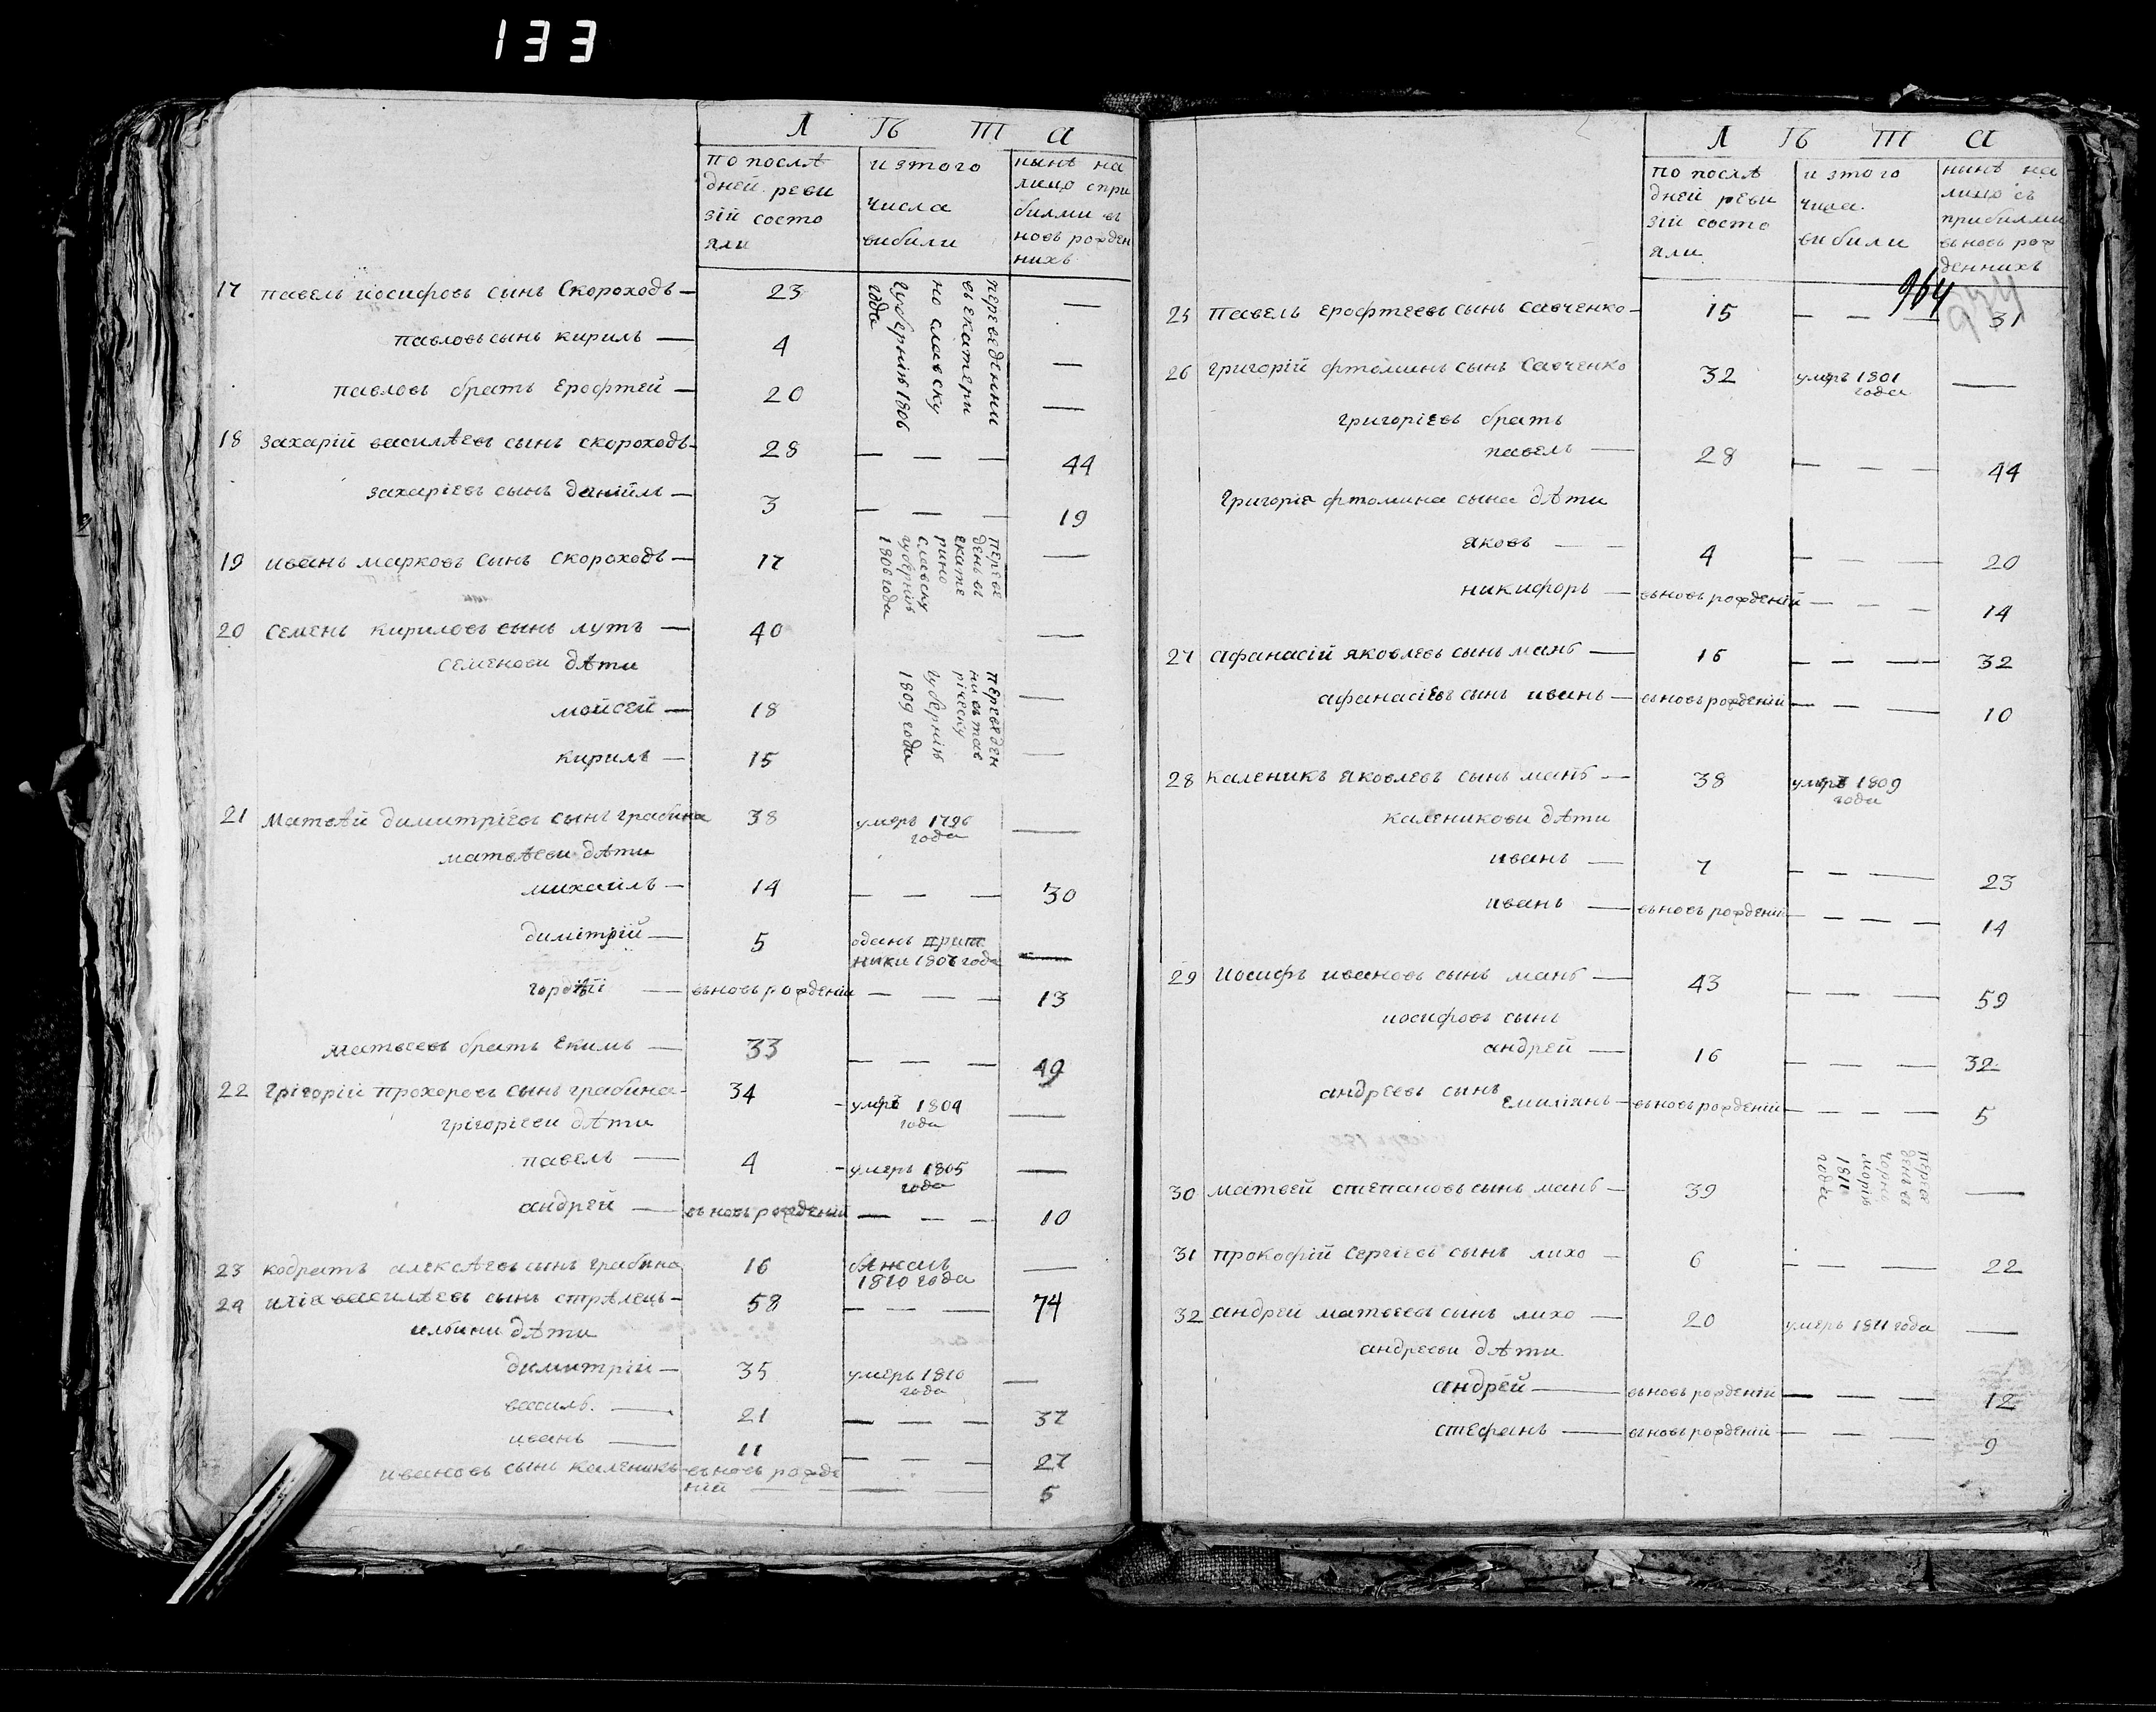 133
Л Ѣ Т А
по послѣ
дней реви
зій состо
яли
изтого
числа
вибили
нынѣ на
лицо спри
билми въ
новь рожден
нихъ
17 павелъ иосифовъ сынъ Скороходъ — 23 —
переведенни
въ екатери
но славску
губернію 1806
года
павловъ сынъ кирилъ — 4 —
павловъ братъ Ерофтей — 20 —
18 захарій василѣевъ сынъ скороходъ — 28 — — — 44
захаріевъ сынъ даніилъ — 3 — — — 19
19 иванъ марковъ сынъ скороходъ — 17 —
переве
денъ въ
екате
рино
славску
губернію
1806 года
20 семенъ кириловъ сынъ лутъ — 40 —
семенови дѣти
переведен
ни въ тав
рическу
губернію
1809 года
мойсей — 18 —
кирилъ — 15 —
21 Матвѣй димитріевъ сынъ грабина 38 умеръ 1796 —
года
матвѣеви дѣти
михаилъ — 14 — — — 30
димітрій — 5 оданъ
ники 1807 года —
гордѣй — вьновь рожденій — — — 13
матвеевъ братъ Екимъ — 33 — — — 49
22 Грігорій прохоровъ сынъ грабина — 34 умре 1809 —
года
грігоріеви дѣти
павелъ — 4 умеръ 1805 —
года
андрей — вьновь рожденій — — — 10
23 кодратъ алексѣевъ сынъ грабина 16 бѣжалъ —
1810 года
24 иліа василѣевъ сынъ стрѣлецъ — 58 — — — 74
илбини дѣти
димитрій — 35 умеръ 1810 —
года
василь — 21 — — — 37
иванъ — 11 — — — 27
ивановъ сынъ каленикъ — вьновь рожде
ній — — — 5
Л Ѣ Т А
по послѣ
дней реви
зій состо
яли
изтого
числа
вибили
нинѣ на
лицо съ
прибилми
вьновь рож
деннихъ
964
934
25 павелъ Ерофтеевъ сынъ савченко — 15 — — — 31
26 григорій фтоминъ сынъ савченко 32 умеръ 1801 —
года
григоріевъ братъ
павелъ — 28 — — — 44
Григоріа фтомина сына дѣти
яковъ — 4 — — — 20
никифоръ — вьновь рожденій — — — 14
27 афанасій яковлевъ сынъ манѣ — 16 — — — 32
афанасіевъ сынъ иванъ — вьновь рожденій — — — 10
28 каленикъ яковлевъ сынъ манѣ — 38 умре 1809
года
каленикови дѣти
иванъ — 7 — — — 23
иванъ — вьновь рожденій — — — 14
29 Иосифъ ивановъ сынъ манѣ — 43 — — — 59
иосифовъ сынъ
андрей — 16 — — — 32
андреевъ сынъ
емиліянъ — вьновь рожденій — — — 5
30 матвей степановъ сынъ манѣ — 39 —
переве
денъ въ
чорно
морію
1811
года
31 прокофій сергіевъ сынъ лихо — 6 — — — 22
32 андрей матвеевъ сынъ лихо — 20 умеръ 1811 года —
андрееви дѣти
андрей — вьновь рожденій — — — 12
стефанъ — вьновь рожденій — — — 9